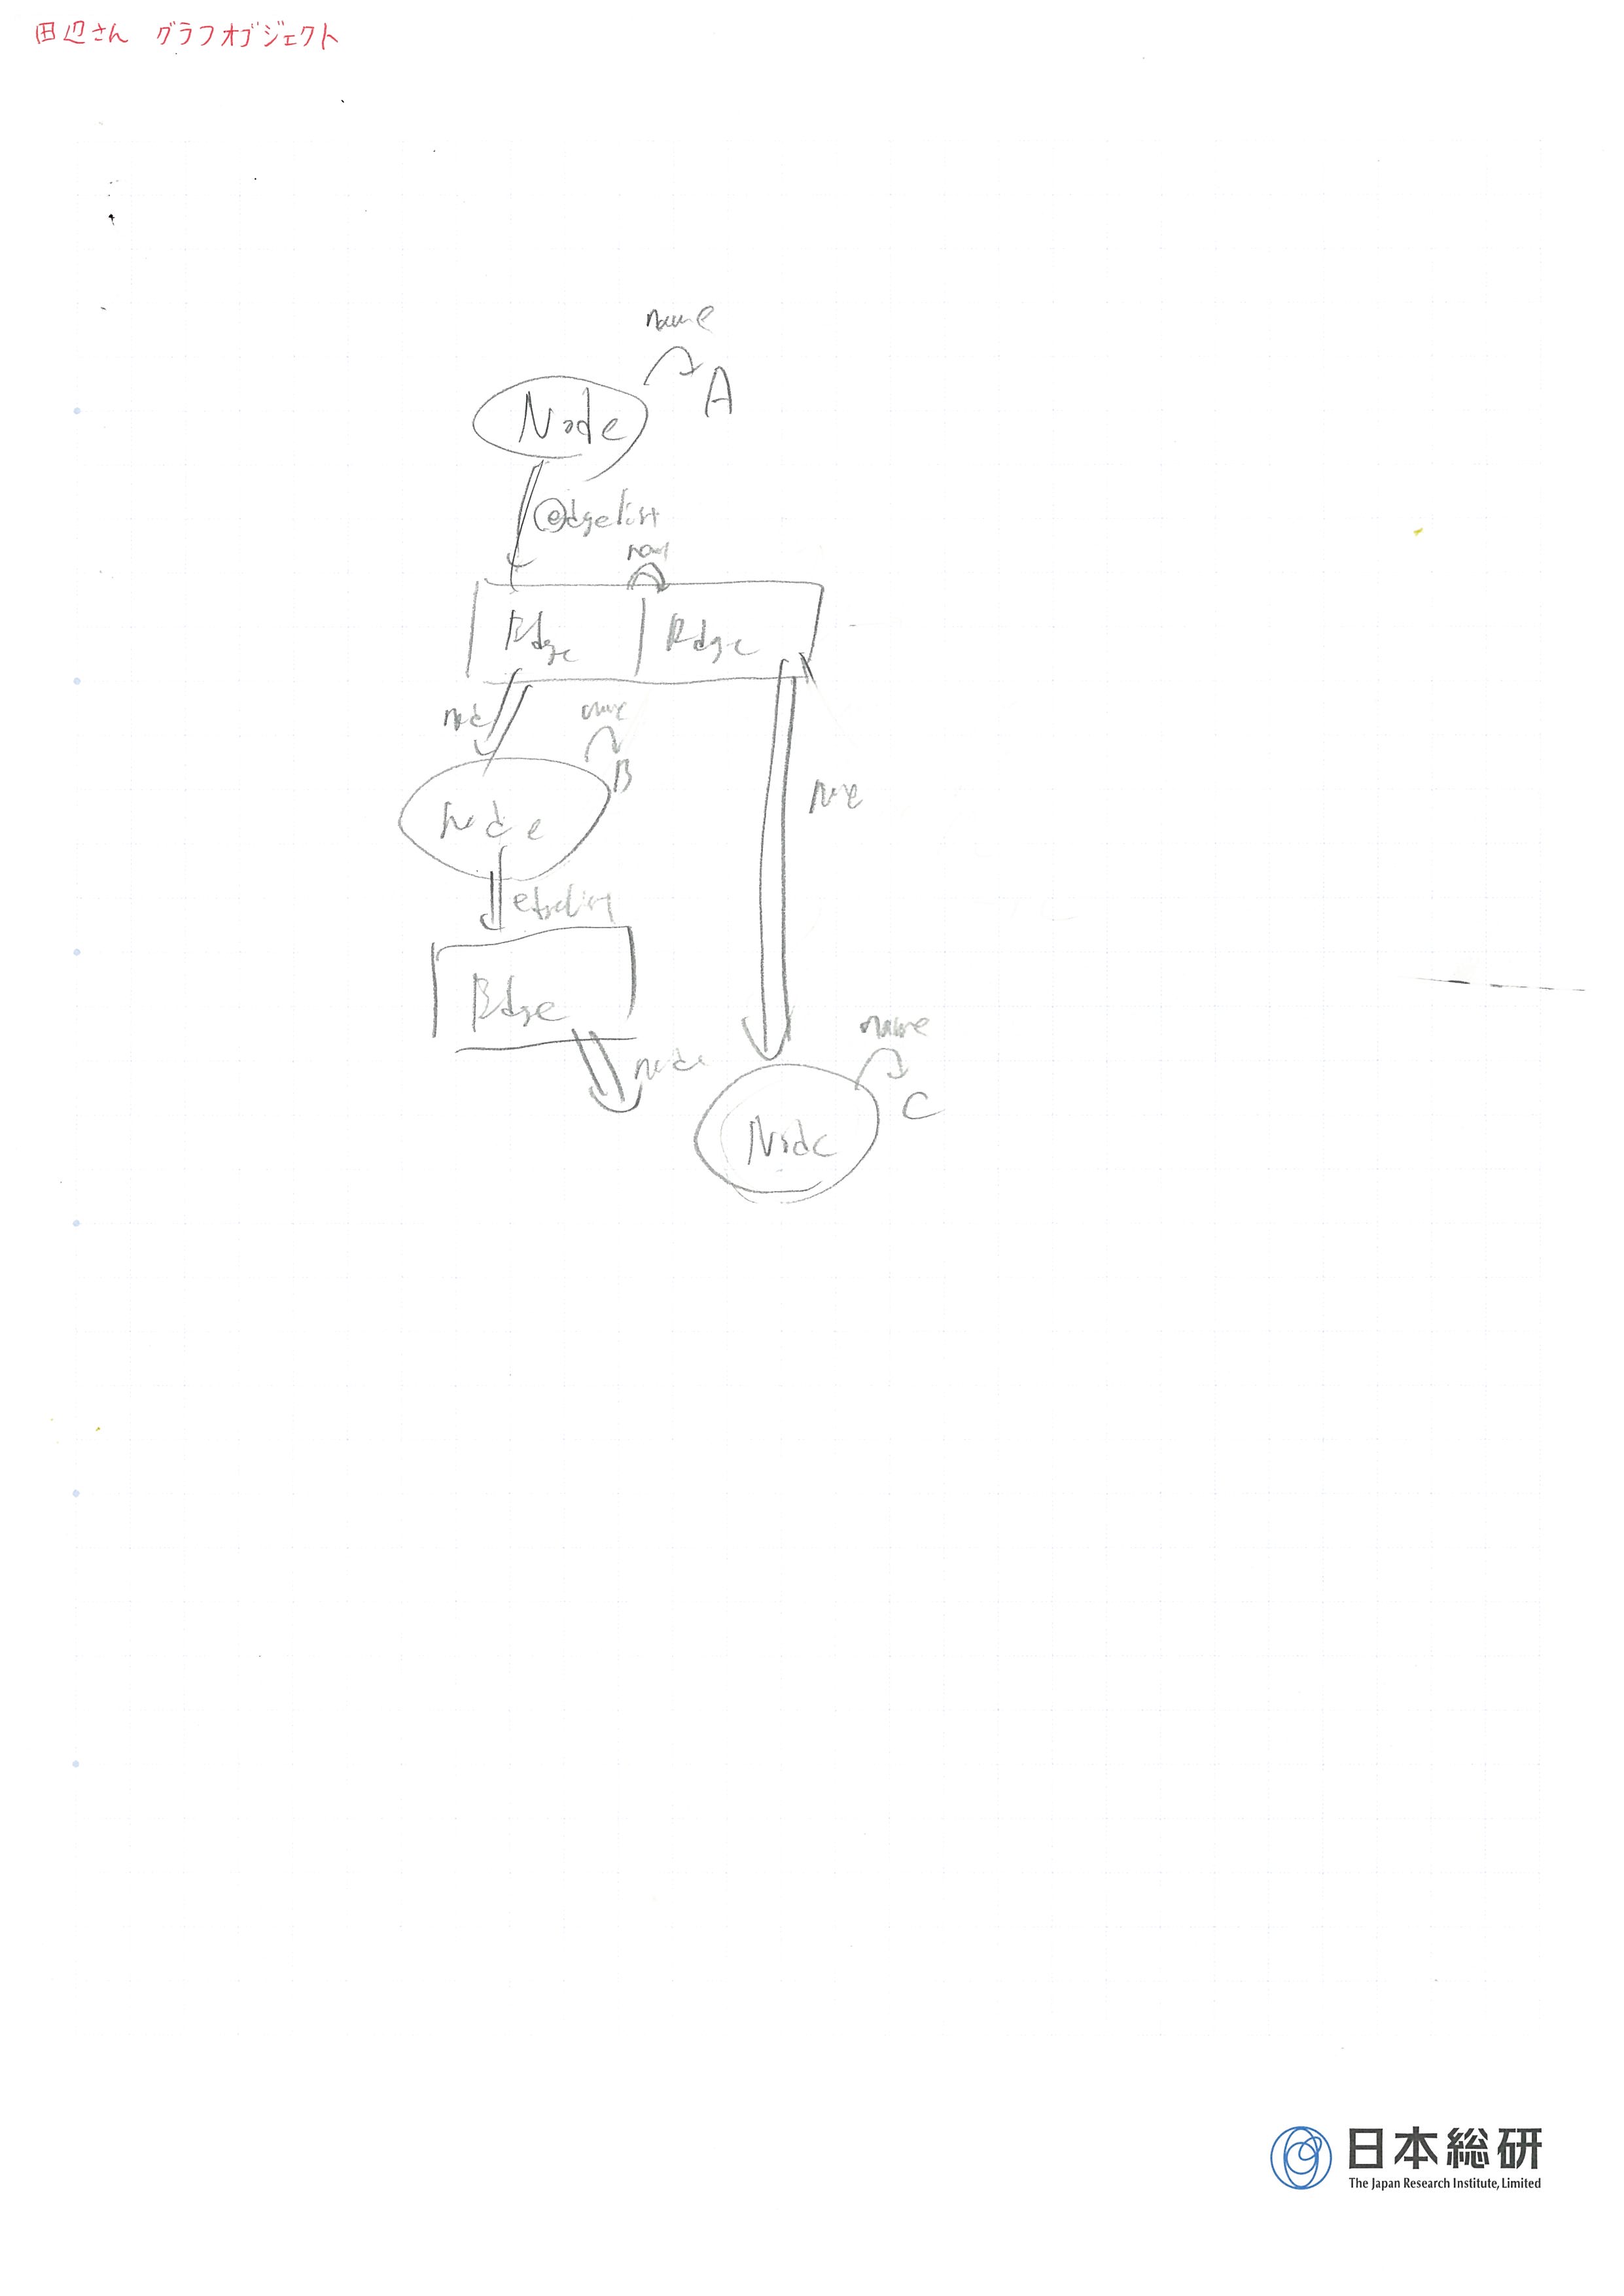 田辺さん グラフオブジェクト
name
A
Node
@edgelist
next
Edge Edge
node
name
B
Node
Node
edgelist
Edge
node
name
C
Node
日本総研
The Japan Research Institute, Limited